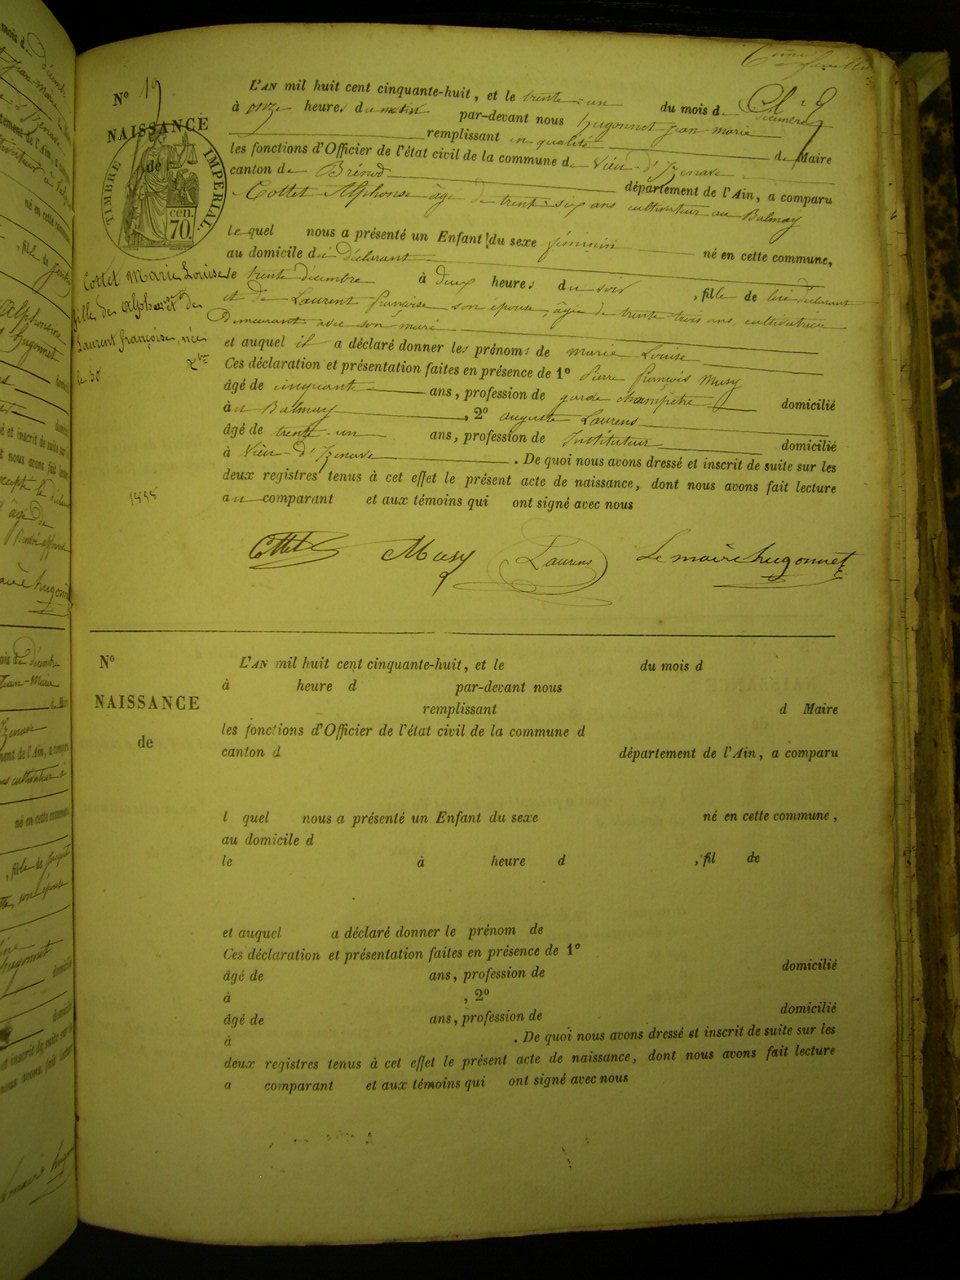 N° 19
NAISSANCE
de
TIMBRE IMPERIAL.
70.
CEN.
Cottet Marie Louise
fille de Alphonse et de
Laurent françoise, née
le 30 Xbre
L'AN mil huit cent cinquante-huit, et le trente-un du mois de Décembre
à onze heures du matin par-devant nous hugonnet jean marie
remplissant en qualité de Maire
les fonctions d'Officier de l'état civil de la commune de Vieu-d'Izenave
canton de Brénod département de l'Ain, a comparu
Cottet Alphonse âgé de trente-six ans cultivateur au Balmay
lequel nous a présenté un Enfant du sexe féminin né en cette commune,
au domicile du déclarant
le trente décembre à deux heures du soir, fille de lui déclarant
et de Laurent françoise son épouse, âgée de trente trois ans, cultivatrice
Demeurant avec son mari
et auquel il a déclaré donner les prénoms de marie Louise
Ces déclaration et présentation faites en présence de 1° Pierre françois Musy
âgé de cinquante ans, profession de garde champêtre domicilié
au Balmay, 2° auguste Laurens
âgé de trente-un ans, profession de Instituteur domicilié
à Vieu-d'Izenave. De quoi nous avons dressé et inscrit de suite sur les
deux registres tenus à cet effet le présent acte de naissance, dont nous avons fait lecture
au comparant et aux témoins qui ont signé avec nous
Cottet Musy Laurens Le maire hugonnet
N°
NAISSANCE
de
L'AN mil huit cent cinquante-huit, et le du mois d
à heure d par-devant nous
remplissant d Maire
les fonctions d'Officier de l'état civil de la commune d
canton d département de l'Ain, a comparu
l quel nous a présenté un Enfant du sexe né en cette commune,
au domicile d
le à heure d , fil de
et auquel a déclaré donner le prénom de
Ces déclaration et présentation faites en présence de 1°
âgé de ans, profession de domicilié
à , 2°
âgé de ans, profession de domicilié
à . De quoi nous avons dressé et inscrit de suite sur les
deux registres tenus à cet effet le présent acte de naissance, dont nous avons fait lecture
a comparant et aux témoins qui ont signé avec nous